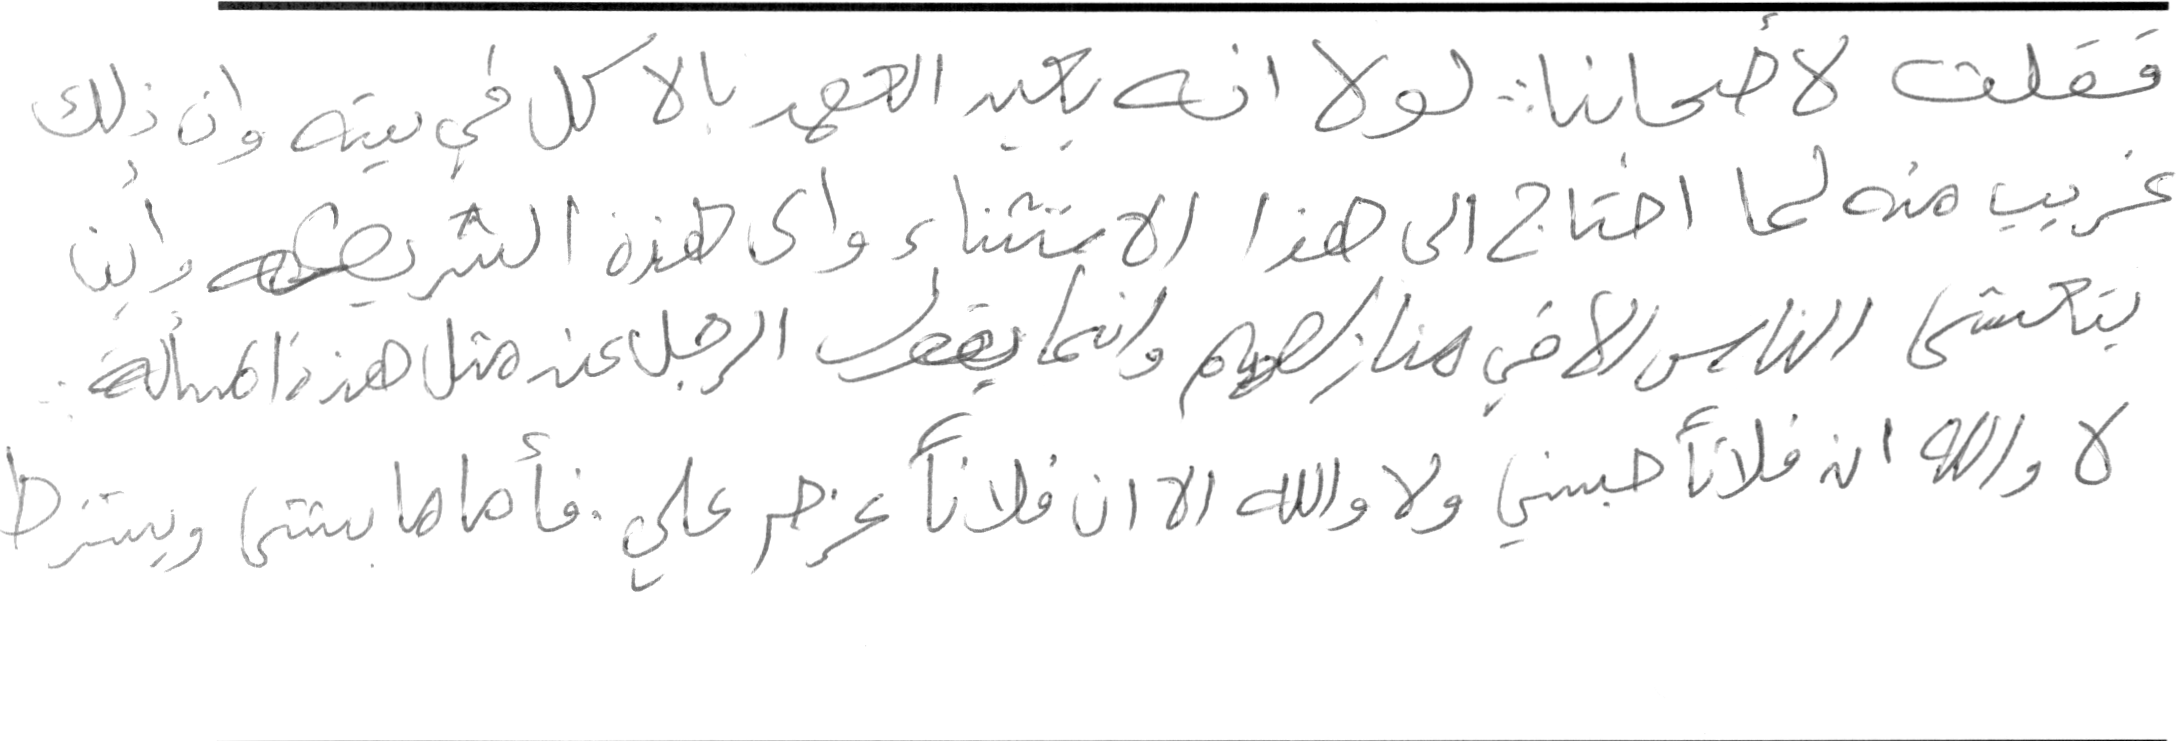 فقلت لأصحابنا: لولا انه بعيد العهد بالاكل في بيته وان ذلك
غريب منه لما احتاج الى هذا الاستثناء وأى هذه الشريطه وأين
يتعشى الناس الا في منازلهم وانما يقول الرجل عند مثل هذه المسألة:
لا والله ان فلاناً حبسني ولا والله الا ان فلاناً عزم علي. فأما ما يستثنى ويشترط